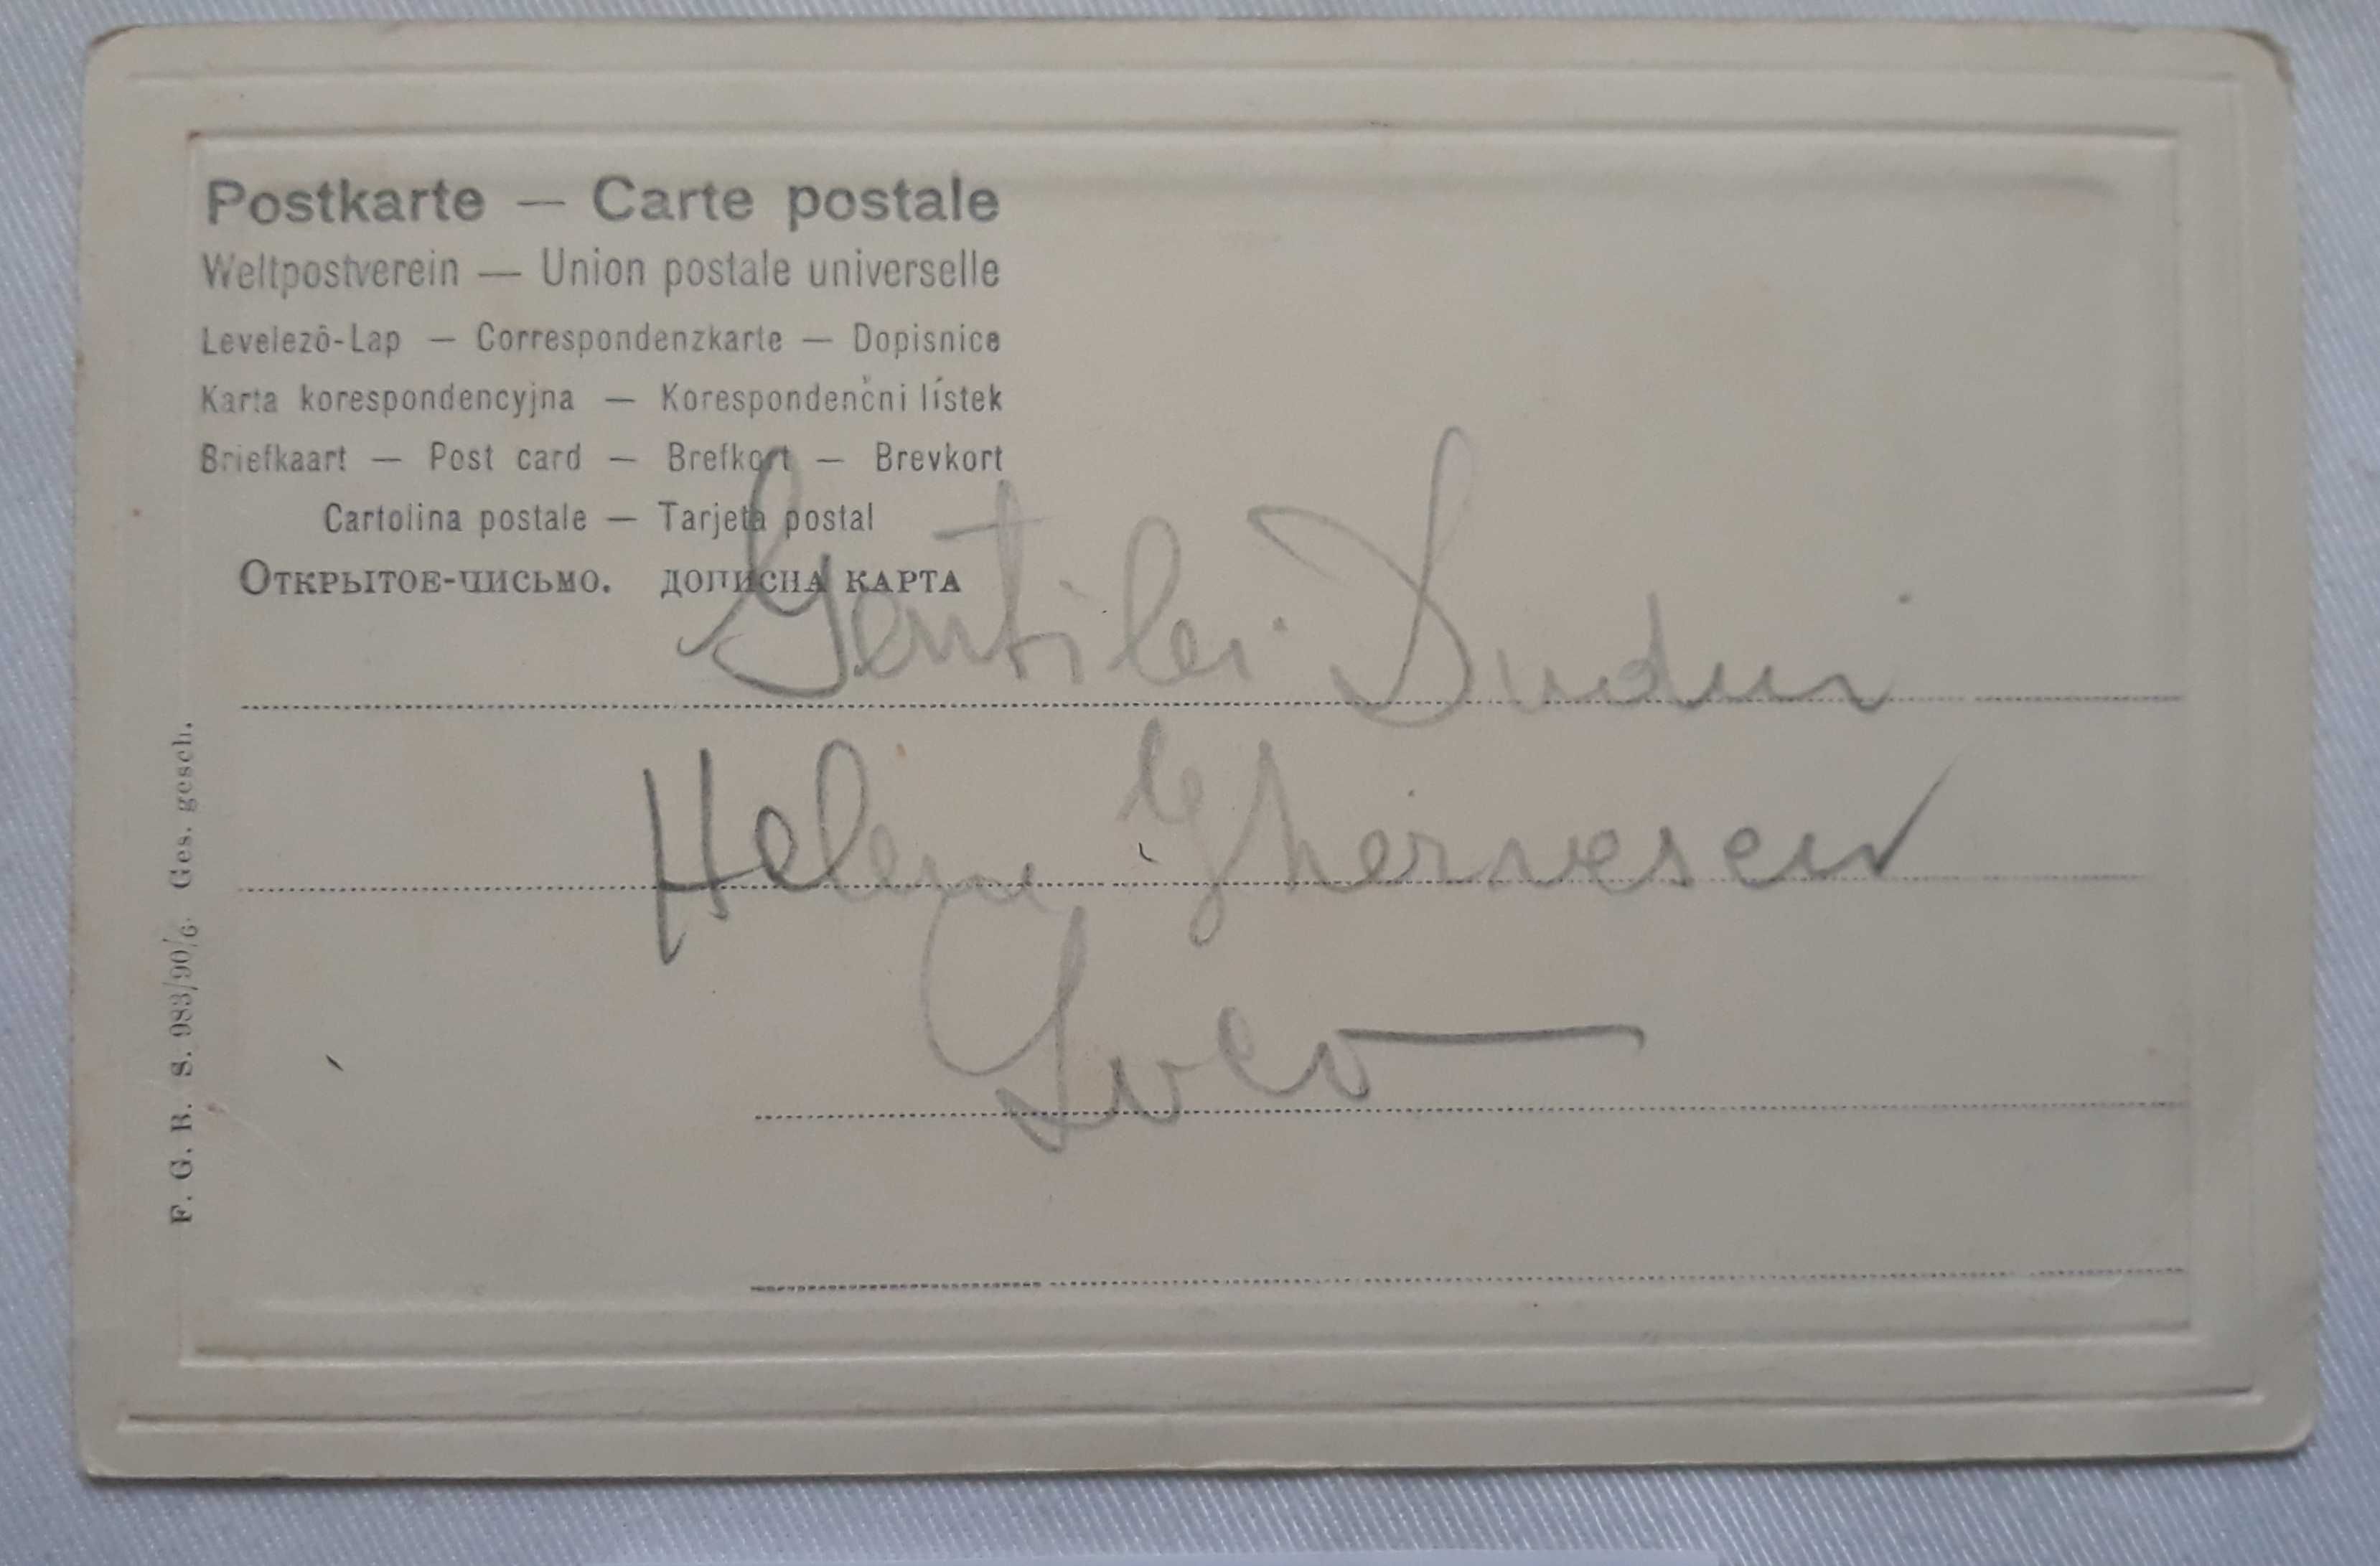 Postkarte — Carte postale
Weltpostverein — Union postale universelle
Levelezô-Lap — Correspondenzkarte — Dopisnice
Karta korespondencyjna — Korespondenčni lístek
Briefkaart — Post card — Brefkort — Brevkort
Cartolina postale — Tarjeta postal
Открытое-письмо. дописна карта
Gentilei
Helene
Loco
F. G. B. S. 983/90/6. Ges. gesch.